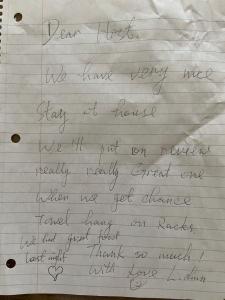 Dear Host.
We have very nice
Stay at house
We'll put on review
really really Great one
When we get chance
Towel hang on Racks
We had great food
Last night
Thank so much!
With Love